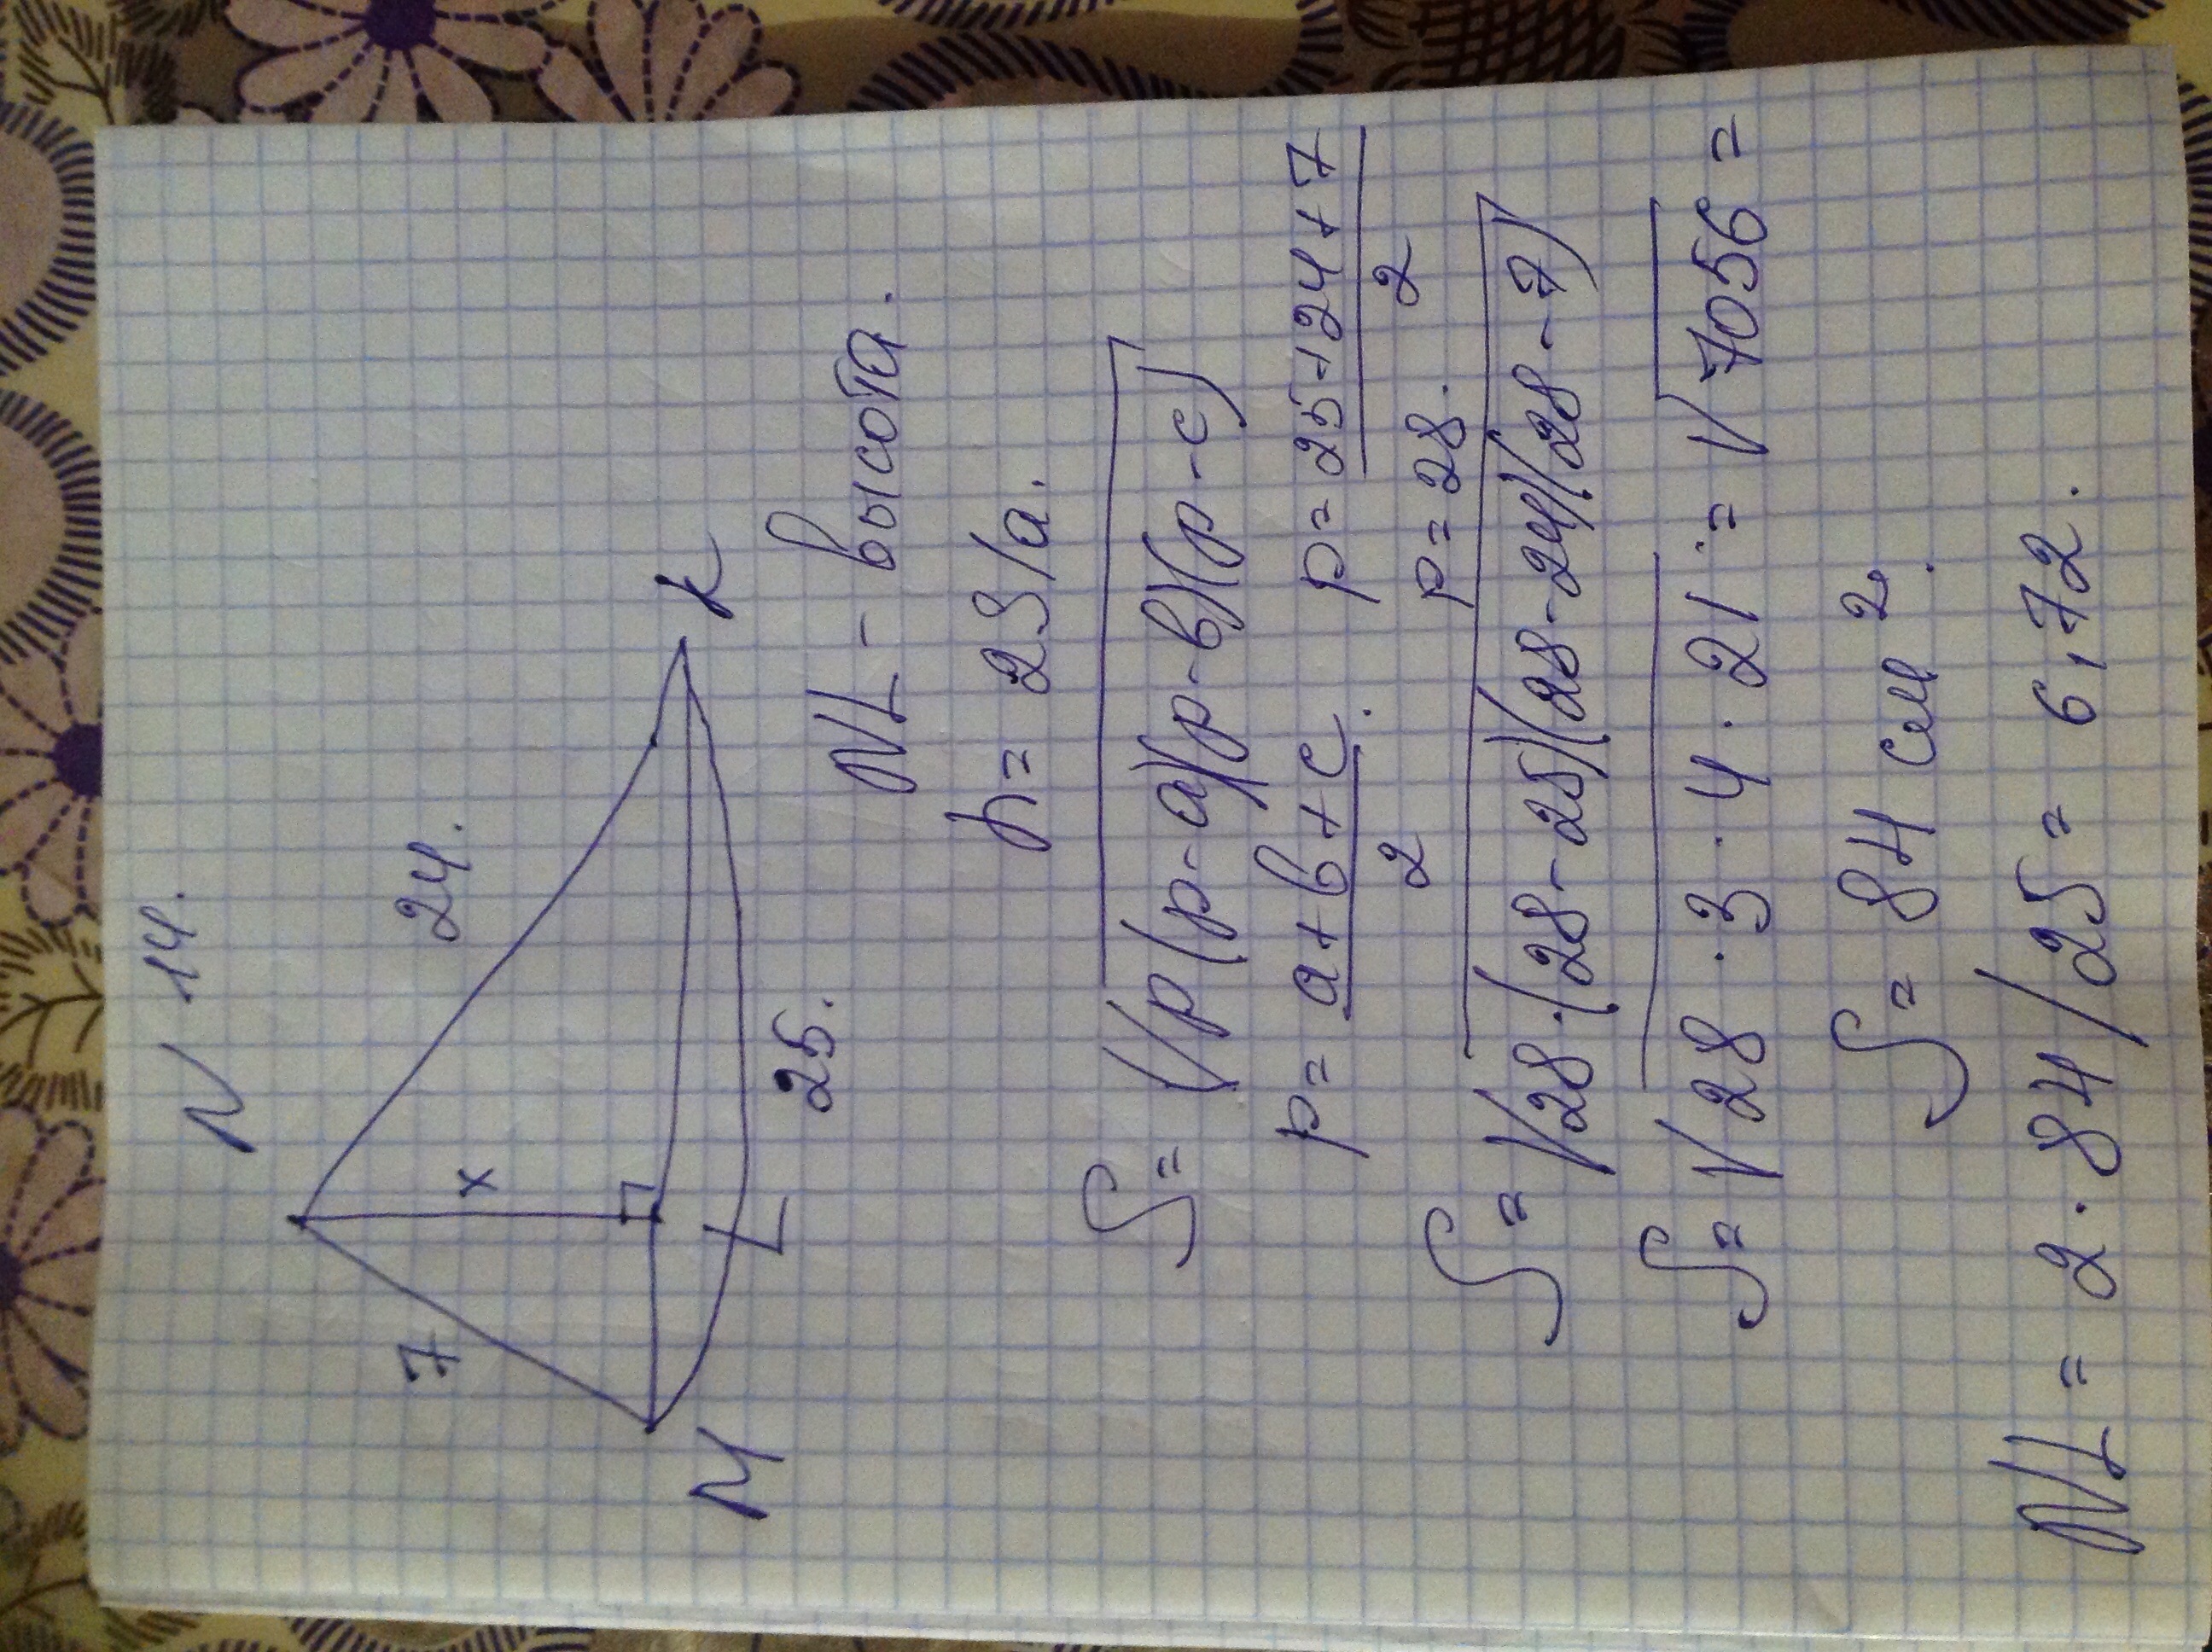 N 14.
N
7
x
24.
M
L
K
25.
NL - высота.
h = 2S/a.
S = √p(p-a)(p-b)(p-c)
p = a+b+c/2. p = 25+24+7/2
p = 28.
S = √28·(28-25)(28-24)(28-7)
S = √28·3·4·21 = √7056 =
S = 84 см².
NL = 2·84/25 = 6,72.